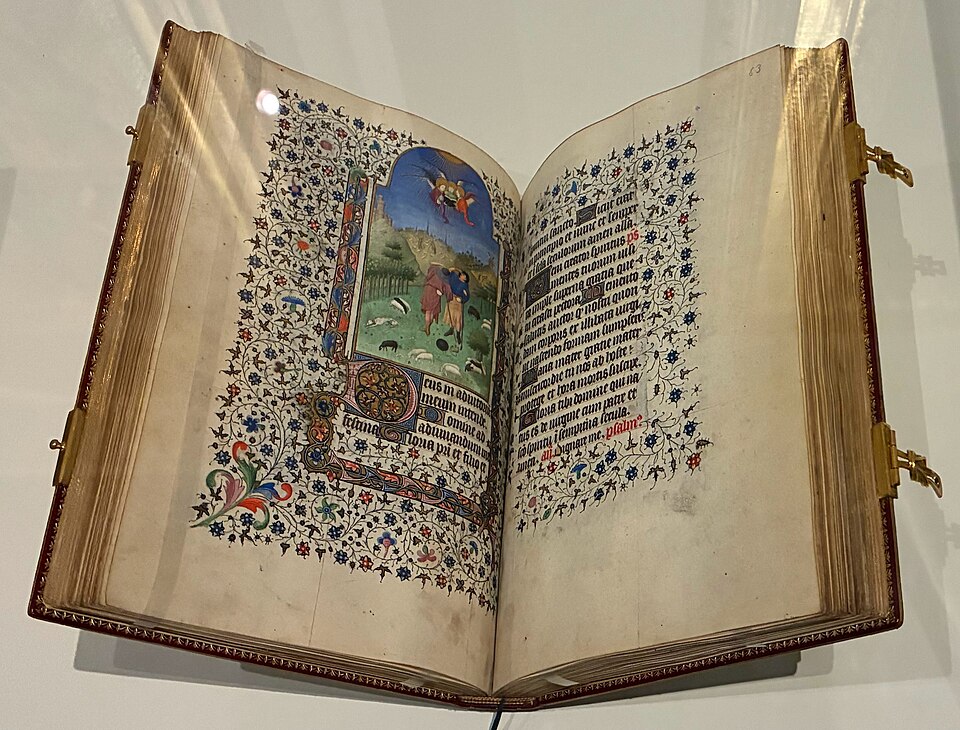 eus in adiutori
meum intende
omine ad
adiuvandum me
festina Gloria pri et filio et
63
Sicut erat
in principio et nunc et semper
et in secula seculorum amen alla
Veni creator spiritus ps
mentes tuorum visi
ta imple superna gratia que
tu creasti pectora Memento
salutis auctor q nostri quon
dam corporis ex illibata virgi
ne nascendo formam sumpseris
Maria mater gratie mater
misericordie tu nos ab hoste
protege et hora mortis suscipe
Gloria tibi domine qui na
tus es de virgine cum patre et
sco spiritu i sempiterna secula
amen. añ Dignare me. psalm9